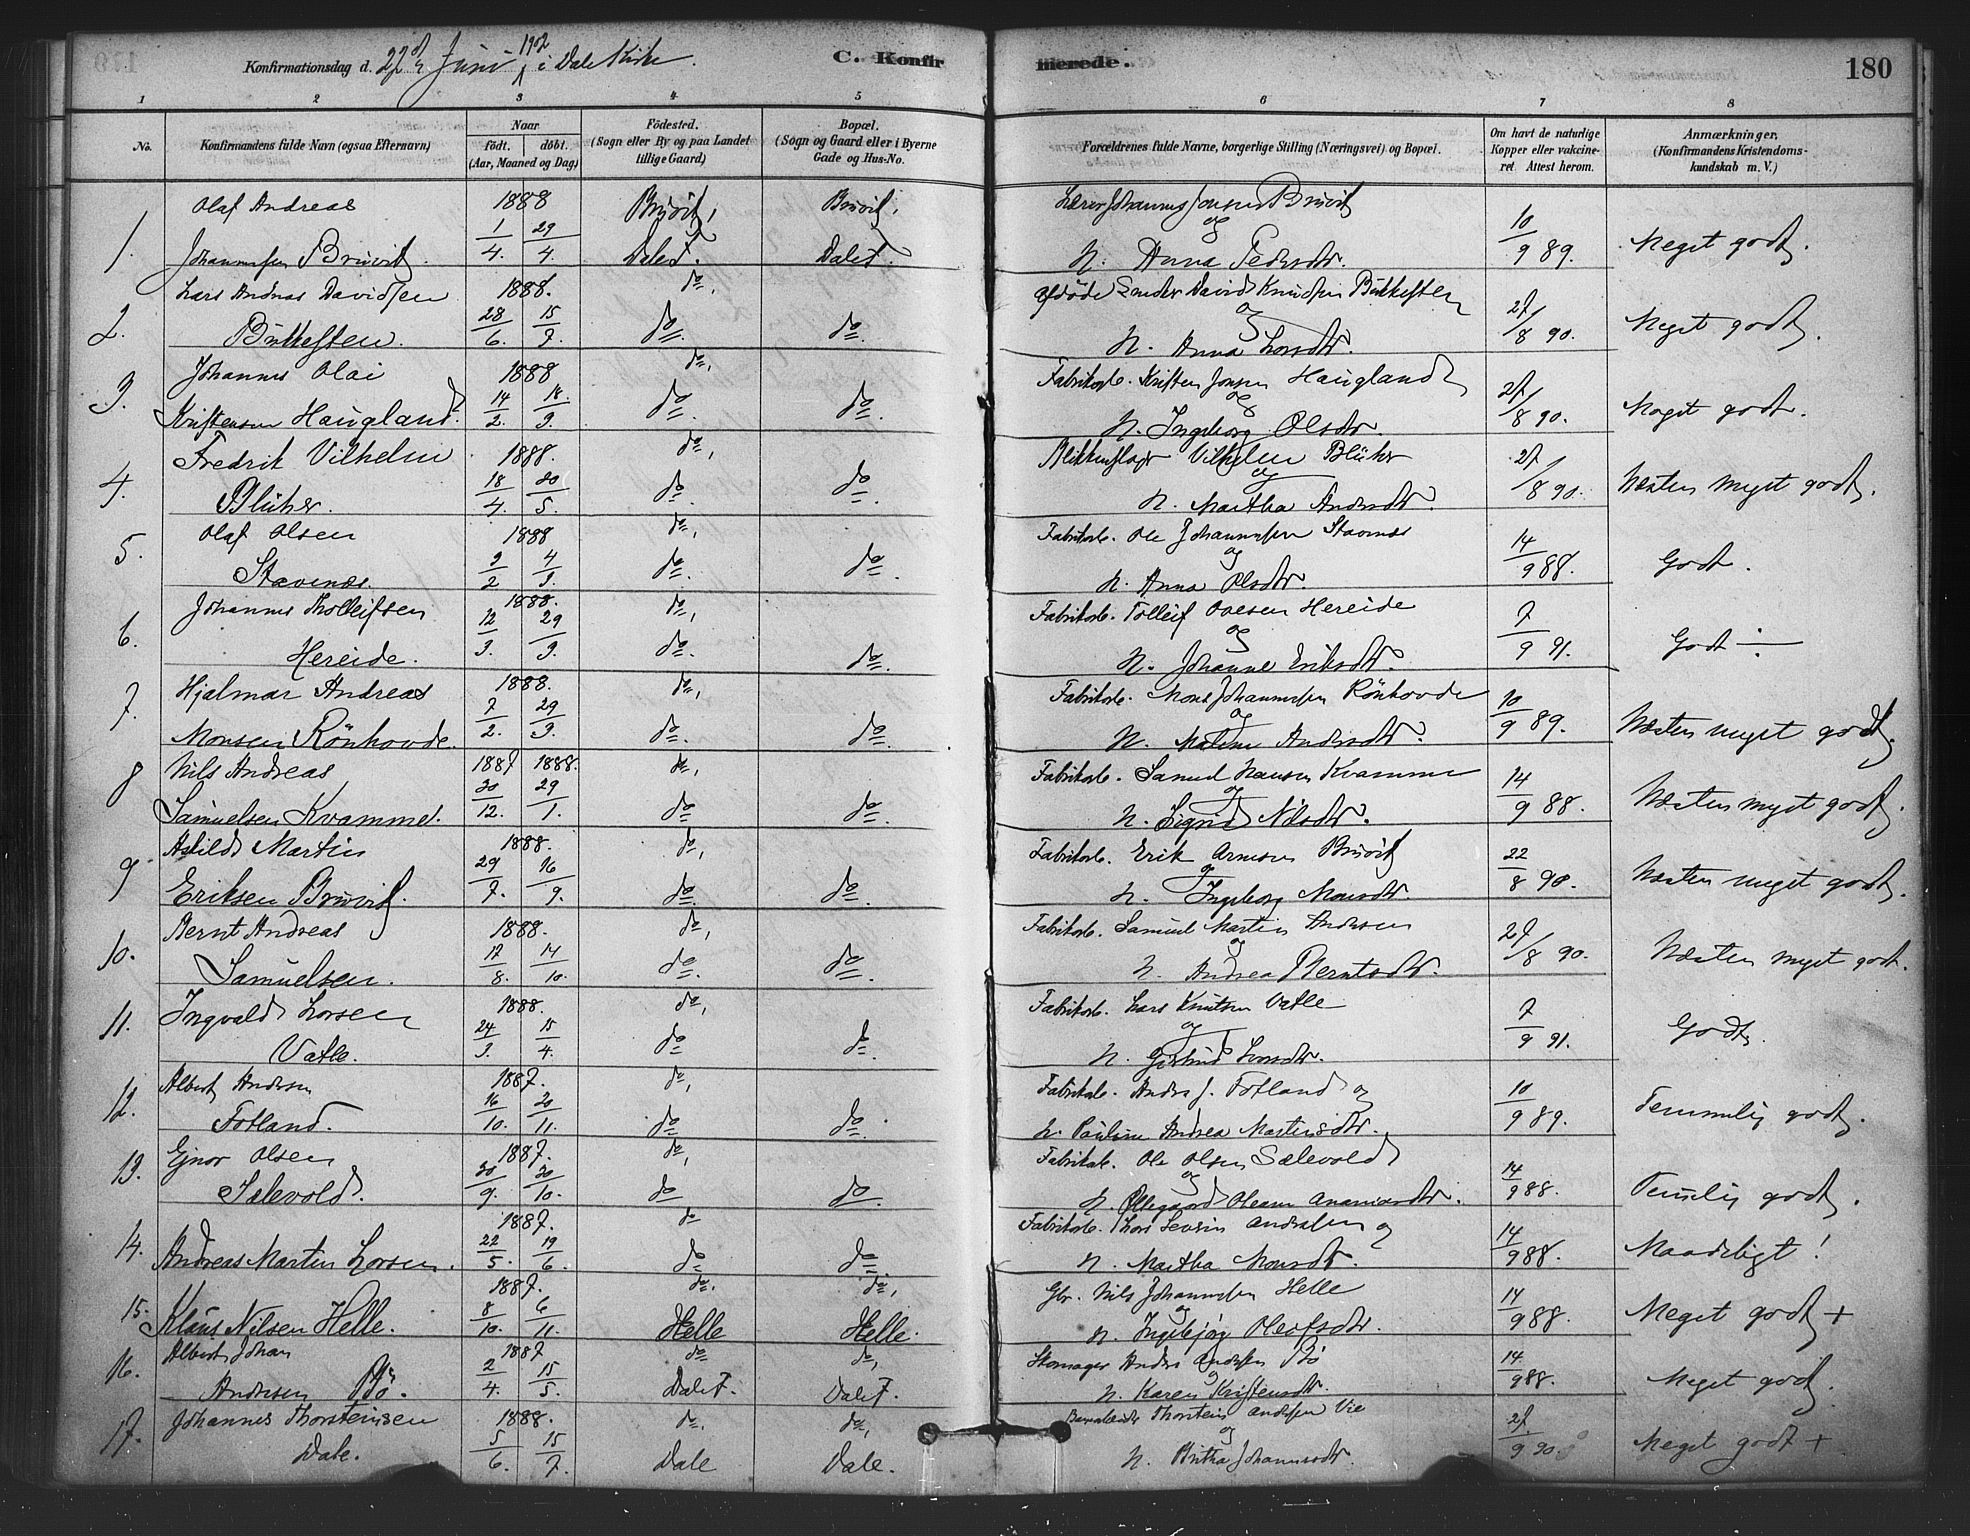 Konfirmationsdag d. 22de Juni 1902 i Dale Kirke.
C. Konfirmerede.
180
1 2 3 4 5 6 7 8
No.
Konfirmandens fulde Navn (ogsaa Efternavn)
Naar
født. døbt.
(Aar, Maaned og Dag)
Fødested.
(Sogn eller By og paa Landet
tillige Gaard)
Bopæl.
(Sogn og Gaard eller i Byerne
Gade og Hus-No.
Forældrenes fulde Navne, borgerlige Stilling (Næringsvei) og Bopæl.
Om havt de naturlige
Kopper eller vakcine-
ret. Attest herom.
Anmærkninger,
(Konfirmandens Kristendoms-
kundskab m. V.)
Olaf Andreas 1888 Bruvik, Bruvik, Lærer Johannes Jonsen Bruvik
1. Johannessen Bruvik. 1/4. 29/4. Dale F. Dale F. og H. Anna Pedersdtr. 10/9 89. Meget godt.
Lars Andreas Davidsen 1888. do, afdøde Smeder David Knudsen Bukkesten
2. Bukkesten. 28/6. 15/7. do. do. og H. Anna Larsdtr. 27/8 90. Meget godt.
Johannes Olai 1888 do, Fabrikarb. Kristen Jonsen Haugland
3. Kristensen Haugland. 14/2. 18./3. do. do. og H. Ingeborg Olsdtr. 27/8 90. Meget godt.
Fredrik Vilhelm 1888. do, Blikkenslager Vilhelm Blüher
4. Blüher. 18/4. 20/5. do. do. og H. Martha Andersdtr. 27/8 90. Næsten meget godt.
Olaf Olsen 1888 do, Fabrikarb. Ole Johannessen Stavenæs
5. Stavenæs. 2/2 4/3. do. do. og H. Anna Olsdtr. 14/9 88. Godt.
Johannes Tholleifsen 1888. do, Fabrikarb. Tolleif Olesen Hereide
6. Hereide. 12/3. 29/3. do. do. og H. Johanne Eriksdtr. 7/9 91. Godt ÷
Hjalmar Andreas 1888. do, Fabrikarb. Mons Johannessen Rönhovde
7. Monsen Rönhovde. 7/2. 29/3. do. do. og H. Malene Andersdtr. 10/9 89. Næsten meget godt.
Nils Andreas 1887 1888. do, Fabrikarb. Samuel Hansen Kvamme
8 Samuelsen Kvamme. 30/12. 29/1. do. do. og H. Sigrid Nilsdtr. 14/9 88. Næsten meget godt.
Askild Martin 1888. do, Fabrikarb. Erik Arnesen Bruvik
9 Eriksen Bruvik. 29/7. 16/9. do. do. og H. Ingeborg Monsdtr. 22/8 90. Næsten meget godt.
Bernt Andreas 1888. do, Fabrikarb. Samuel Martin Andersen
10. Samuelsen. 17/8. 14/10. do. do. og H. Andrea Berntsdtr. 27/8 90. Næsten meget godt.
Ingvald Larsen 1888. do, Fabrikarb. Lars Knutsen Vatle
11. Vatle. 24/3. 15/4. do do. og H. Gertrud Larsdtr. 7/9 91. Godt.
Albert Andersen 1887. do, Fabrikarb. Anders J. Fotland og
12. Fotland. 16/10. 20/11. do. do. H. Pauline Andrea Martinsdtr. 10/9 89. Temmelig godt.
Ejnar Olsen 1887. do, Fabrikarb. Ole Olsen Sælevold
13. Sælevold. 30/9. 30/10. do do. og H. Ollegaard Oleane Ananiasdtr. 14/9 88. Temlig godt.
1887. do Fabrikarb. Lars Severin Andersen og
14. Andreas Martin Larsen. 22/5. 19/6. do do. H. Martha Monsdtr. 14/9 88. Maadeligt!
1887. do. do, Gbr. Nils Johannessen Helle
15. Klaus Nilsen Helle. 8/10. 6/11. Helle Helle. og H. Ingebjørg Olafsdtr. 14/9 88. Meget godt +
Albert Johan 1887 do do, Skomager Anders Andersen Bö
16. Andersen Bö. 2/4. 15/5. Dale F. Dale F. og H. Karen Kristensdtr. 14/9 88. Meget godt.
Johannes Thorsteinsen 1888. do, do, Thorstein Andersen Vie
17. Dale. 5/6. 15/7. Dale Dale. og H. Britha Johannesdtr. 27./9 90. Meget godt +